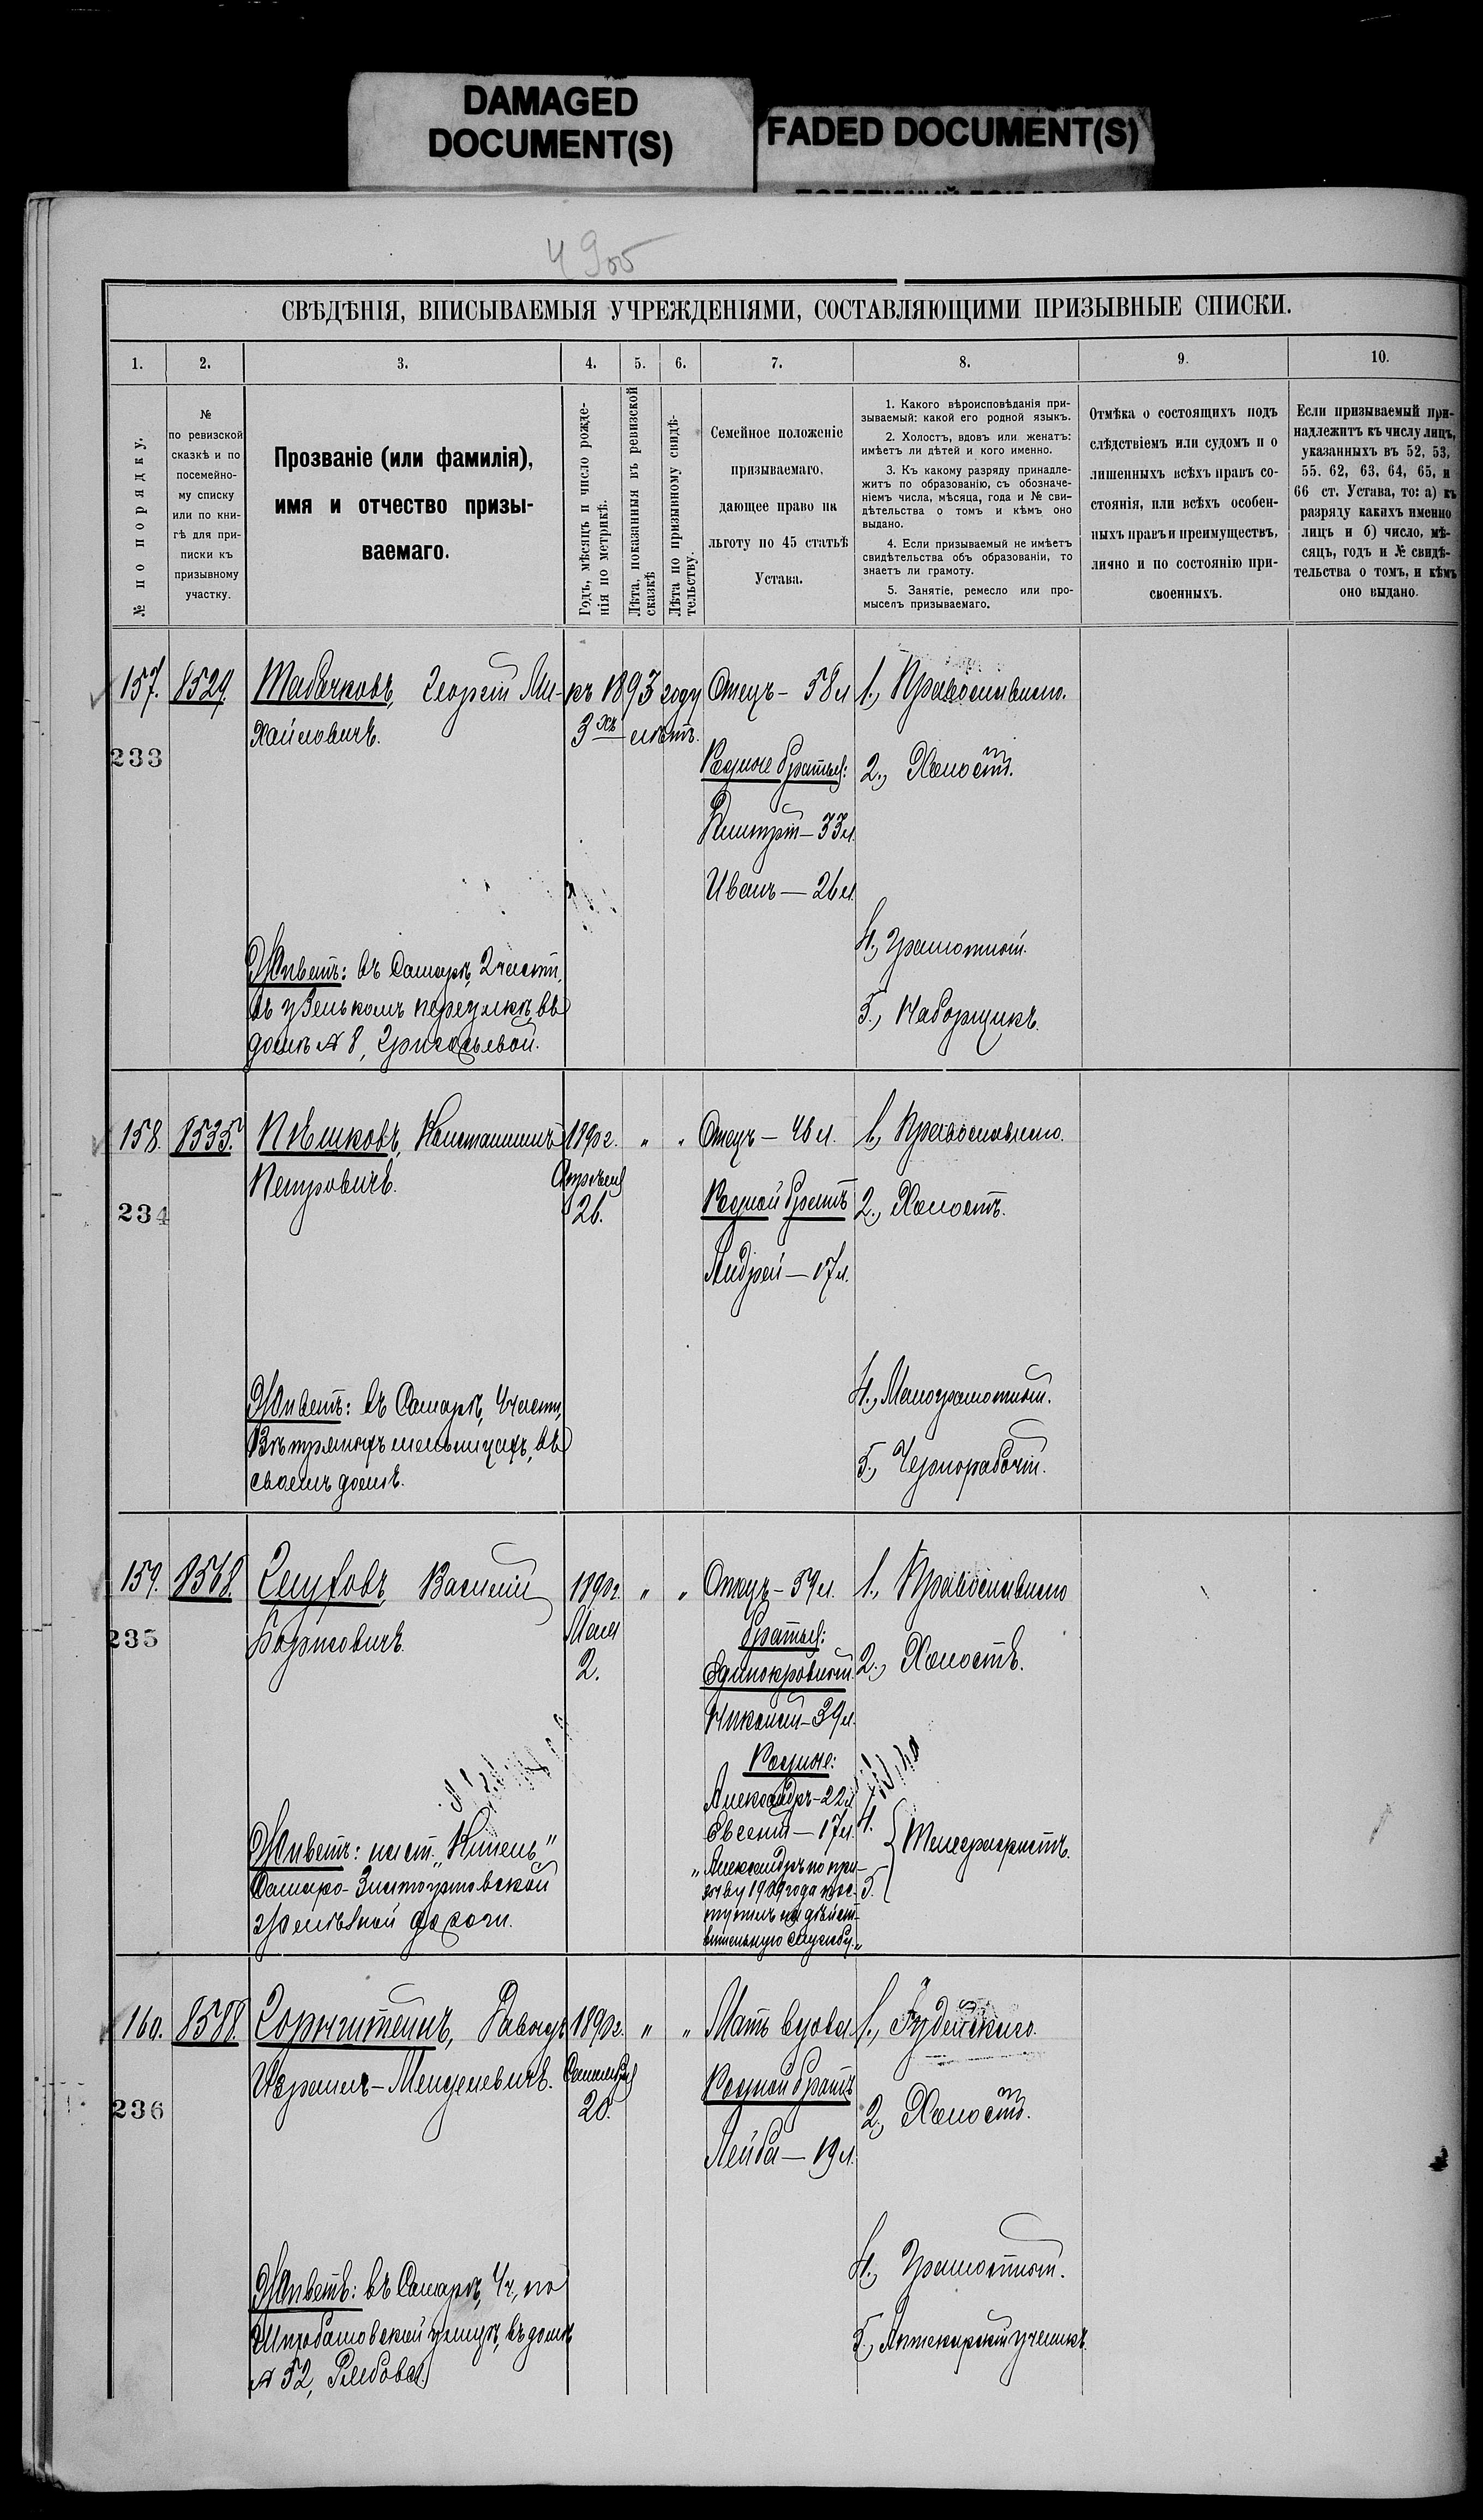 DAMAGED
DOCUMENT(S)
FADED DOCUMENT(S)
СВѢДѢНІЯ, ВПИСЫВАЕМЫЯ УЧРЕЖДЕНІЯМИ, СОСТАВЛЯЮЩИМИ ПРИЗЫВНЫЕ СПИСКИ.
1. 2. 3. 4. 5. 6. 7. 8. 9. 10.
№ по порядку.
№
по ревизской
сказкѣ и по
посемейно-
му списку
или по кни-
гѣ для при-
писки къ
призывному
участку.
Прозваніе (или фамилія),
имя и отчество призы-
ваемаго.
Годъ, мѣсяцъ и число рожде-
нія по метрикѣ.
Лѣта, показанныя въ ревизской
сказкѣ
Лѣта по призывному свидѣ-
тельству.
Семейное положеніе
призываемаго,
дающее право на
льготу по 45 статьѣ
Устава.
1. Какого вѣроисповѣданія при-
зываемый: какой его родной языкъ.
2. Холостъ, вдовъ или женатъ:
имѣетъ ли дѣтей и кого именно.
3. Къ какому разряду принадле-
житъ по образованію, съ обозначе-
ніемъ числа, мѣсяца, года и № сви-
дѣтельства о томъ и кѣмъ оно
выдано.
4. Если призываемый не имѣетъ
свидѣтельства объ образованіи, то
знаетъ ли грамоту.
5. Занятіе, ремесло или про-
мыселъ призываемаго.
Отмѣка о состоящихъ подъ
слѣдствіемъ или судомъ и о
лишенныхъ всѣхъ правъ со-
стоянія, или всѣхъ особен-
ныхъ правъ и преимуществъ,
лично и по состоянію при-
своенныхъ.
Если призываемый при-
надлежитъ къ числу лицъ,
указанныхъ въ 52, 53,
55. 62, 63, 64, 65, и
66 ст. Устава, то: а) къ
разряду какихъ именно
лицъ и б) число, мѣ-
сяцъ, годъ и № свидѣ-
тельства о томъ, и кѣмъ
оно выдано.
157. 8529. Табачковъ, Георгій Ми-
хайловичъ.
233
къ 1893 году
3хъ лѣтъ.
Отецъ – 58 л.
Родные братья:
Дмитрій – 33 л.
Иванъ – 26 л.
1., Православнаго.
2., Холостъ.
4., Грамотный.
5., Наборщикъ.
Живетъ: въ Самарѣ, 2 части,
въ узенькомъ переулкѣ, въ
домѣ № 8, Григорьевой.
158. 8535. Пѣшковъ, Константинъ
Петровичъ.
234
1890 г. " "
Апрѣля
26.
Отецъ – 46 л.
Родной братъ
Андрей – 17 л.
1., Православнаго.
2., Холостъ.
4., Малограмотный.
5., Чернорабочій.
Живетъ: въ Самарѣ, 4 части,
Вѣтряныхъ мельницахъ, въ
своемъ домѣ.
159. 8568. Глуховъ, Василій
Борисовичъ.
235
1890 г. " "
Мая
2.
Отецъ – 59 л.
братья:
Единокровный
Николай – 39 л.
Родные:
Александръ – 22 л.
Евгеній – 17 л.
"Александръ по при-
зыву 1909 года пос-
тупилъ на дѣйст-
вительную службу."
1., Православнаго
2., Холостъ.
4.
5.
Телеграфистъ.
Живетъ: на ст. "Кинель"
Самаро-Златоустовской
желѣзной дороги.
160. 8588. Горнштейнъ, Давидъ
Израиль-Менделевичъ.
236
1890 г. " "
Сентября
20.
Мать вдова
Родной братъ
Лейба – 19 л.
1., Іудейскаго.
2., Холостъ.
4., Грамотный.
5., Аптекарскій ученикъ.
Живетъ: въ Самарѣ, 4 ч, по
Шихобаловской улицѣ, въ домѣ
№ 52,